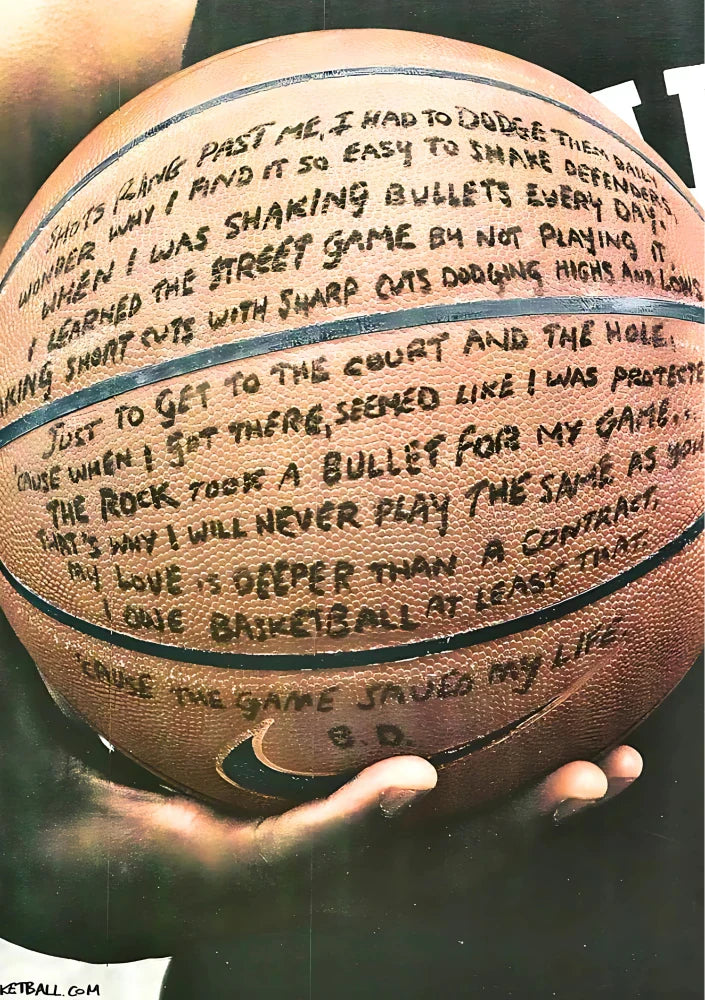 SHOTS RANG PAST ME, I HAD TO DODGE THEM DAILY
WONDER WHY I FIND IT SO EASY TO SHAKE DEFENDERS,
WHEN I WAS SHAKING BULLETS EVERY DAY.
I LEARNED THE STREET GAME BY NOT PLAYING IT,
AKING SHORT CUTS WITH SHARP CUTS DODGING HIGHS AND LOWS
JUST TO GET TO THE COURT AND THE HOLE.
'CAUSE WHEN I GOT THERE, SEEMED LIKE I WAS PROTECTE
THE ROCK TOOK A BULLET FOR MY GAME...
THAT'S WHY I WILL NEVER PLAY THE SAME AS YOU
MY LOVE IS DEEPER THAN A CONTRACT,
I OWE BASKETBALL AT LEAST THAT.
'CAUSE THE GAME SAVED MY LIFE.
B.D.
KETBALL.COM